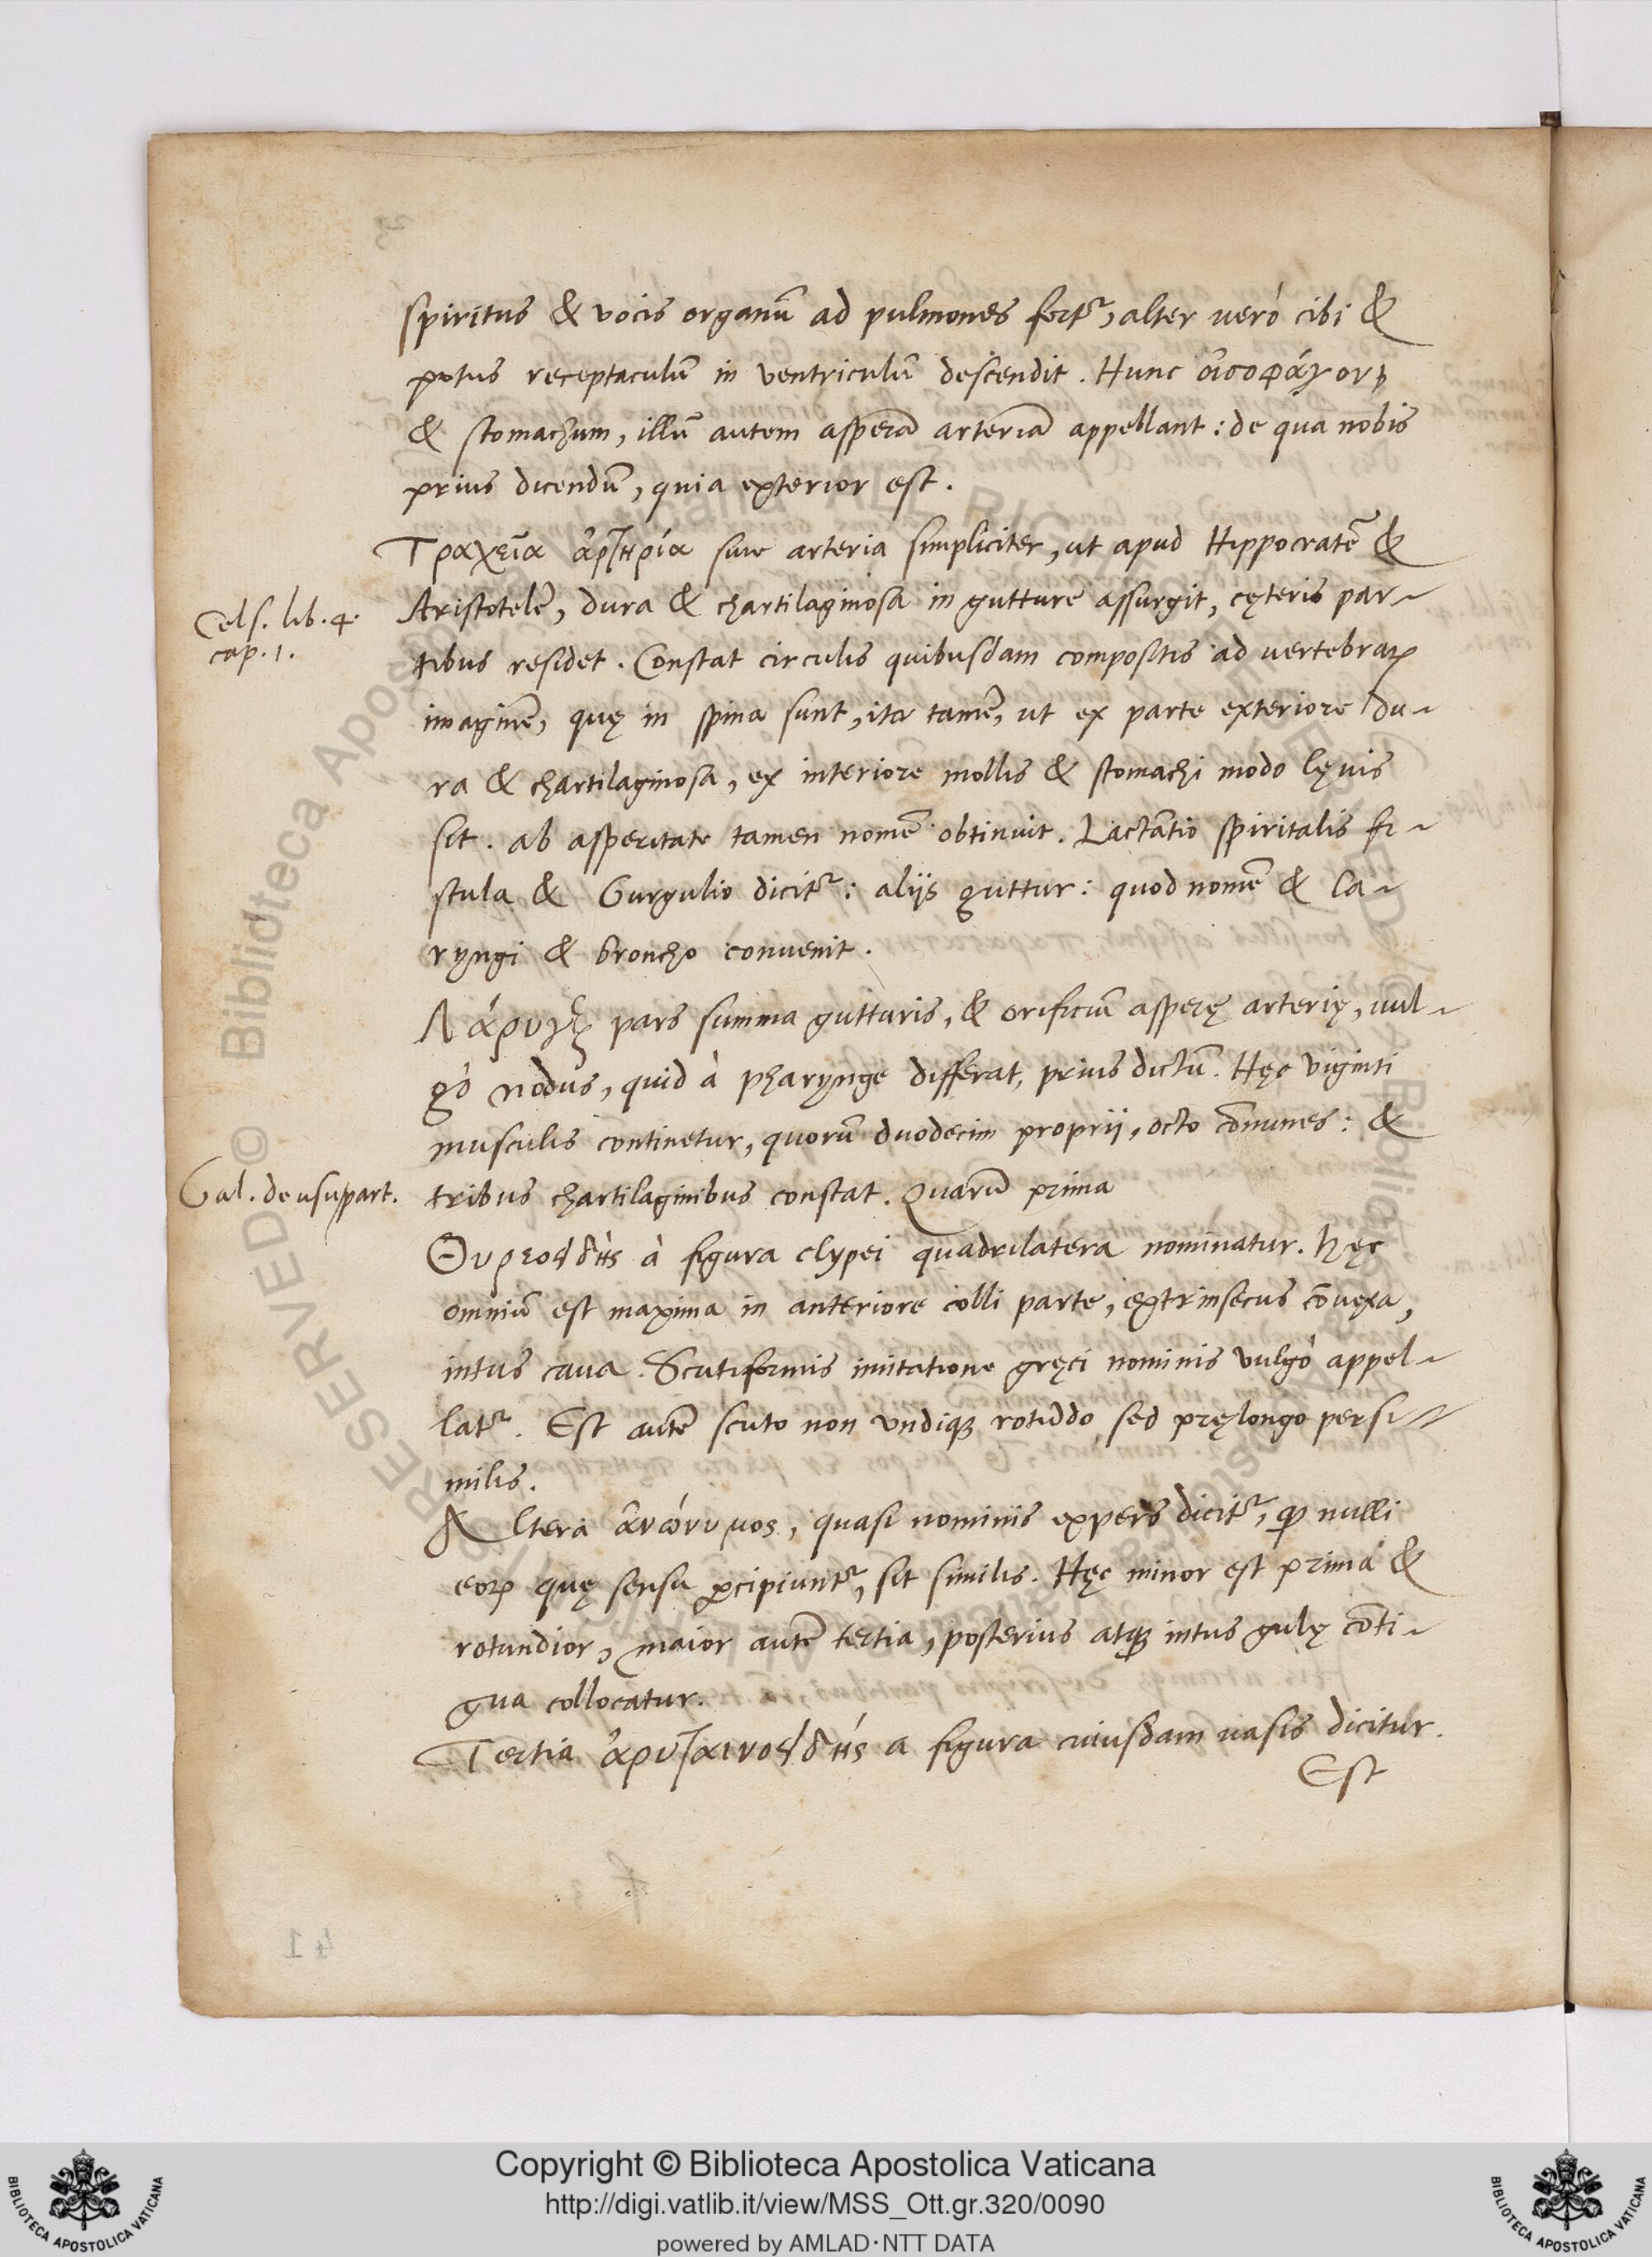 spiritus & vocis organū ad pulmones fertᷣ, alter uerò cibi &
potus receptaculū in ventriculū descendit. Hunc οἰσοφάγον
& stomachum, illū autem asperā arteriā appellant: de qua nobis
prius dicendū, quia exterior est.
Τραχεῖα ἀρτηρία siue arteria simpliciter, ut apud Hippocratē &
Cels. lib. 4.
cap. 1.
Aristotelē, dura & chartilaginosa in gutture assurgit, cęteris par-
tibus residet. Constat circulis quibusdam compositis ad vertebraꝝ
imaginē, quę in spina sunt, ita tamē, ut ex parte exteriore du-
ra & chartilaginosa, ex interiore mollis & stomachi modo lęuis
sit. ab asperitate tamen nomē obtinuit. Lactātio spiritalis fi-
stula & Gurgulio dicitᷣ: aliis guttur: quod nomē & la-
ryngi & broncho conuenit.
Λάρυγξ pars summa gutturis, & orificiū asperę arterię, uul-
gò nodus, quid à pharynge differat, prius dictū. Hęc viginti
musculis continetur, quorū duodecim proprii, octo cōmunes: &
Gal. de usu part.
tribus chartilaginibus constat. Quarū prima
Θυρεοειδὴς à figura clypei quadrilatera nominatur. hęc
omniū est maxima in anteriore colli parte, extrinsecus cōuexa,
intus caua. Scutiformis imitatione gręci nominis vulgò appel-
latᷣ. Est autē scuto non vndiqꝫ rotūdo, sed pręlongo persi-
milis.
Altera ἀνώνυμος, quasi nominis expers dicitᷣ, qꝫ nulli
eoꝝ quę sensu ꝑcipiuntᷣ, sit similis. Hęc minor est prima &
rotundior, maior autē tertia, posterius atqꝫ intus gulę cōti-
gua collocatur.
Tertia ἀρυταινοειδής a figura cuiusdam uasis dicitur.
Est
41
Copyright © Biblioteca Apostolica Vaticana
http://digi.vatlib.it/view/MSS_Ott.gr.320/0090
powered by AMLAD·NTT DATA